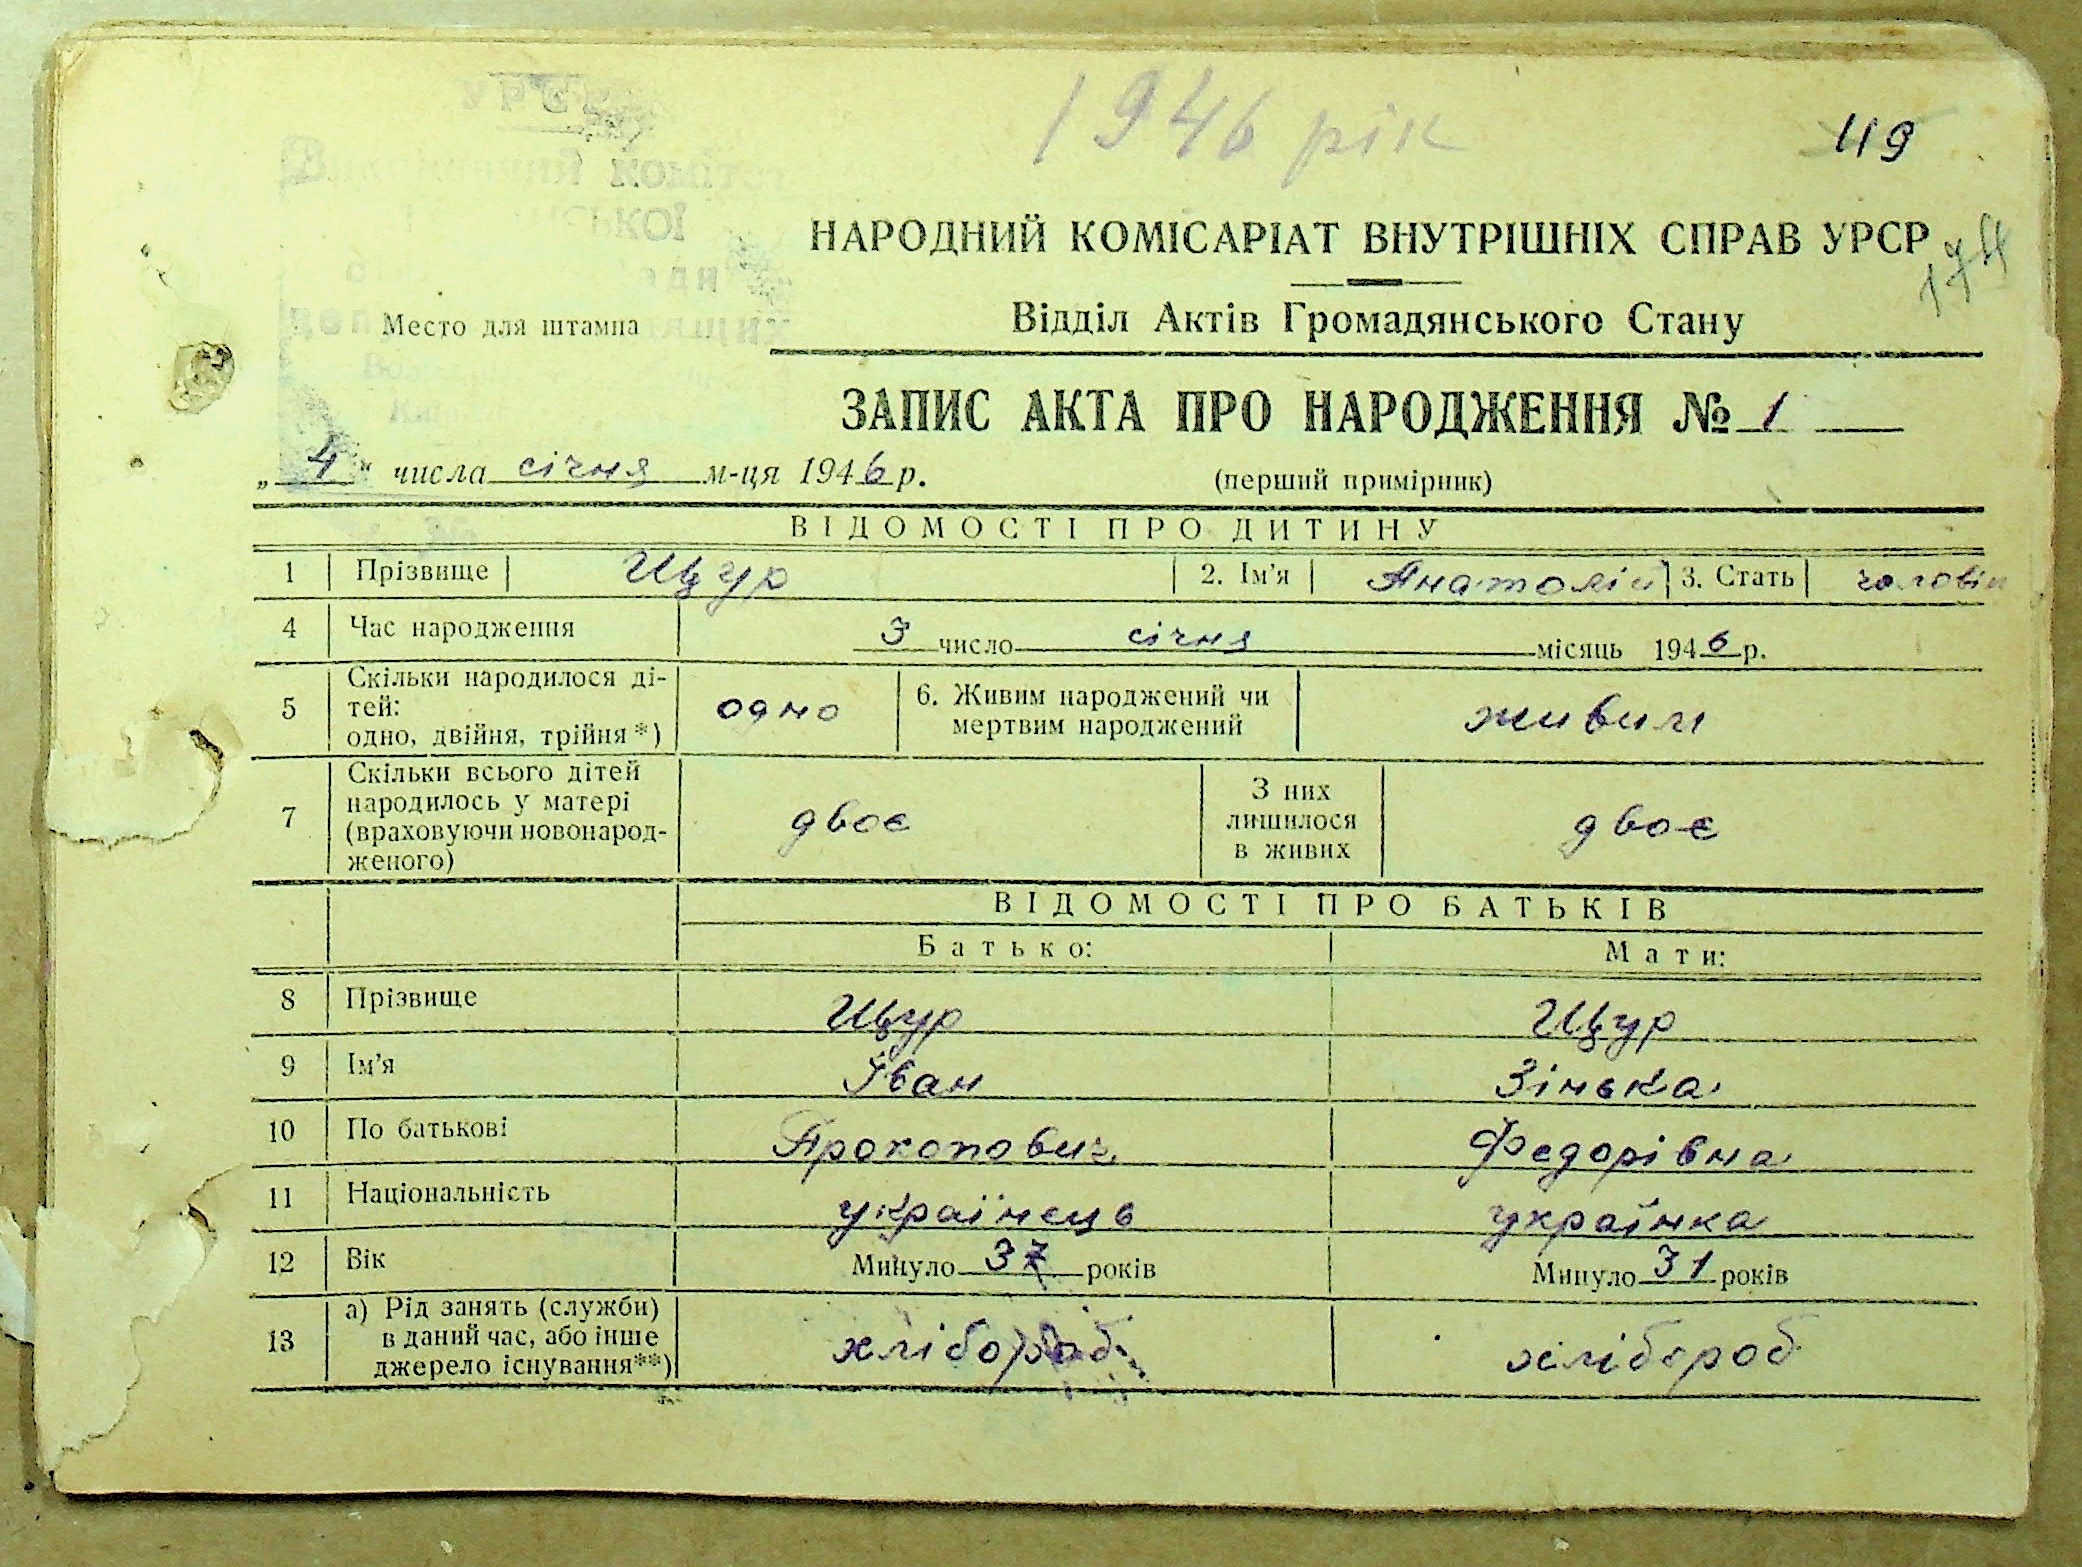 1946 рік
119
УРСР
комітет
НАРОДНИЙ КОМІСАРІАТ ВНУТРІШНІХ СПРАВ УРСР
174
Место для штампа
Відділ Актів Громадянського Стану
ЗАПИС АКТА ПРО НАРОДЖЕННЯ № 1
„4“ числа січня м-ця 1946 р.
(перший примірник)
ВІДОМОСТІ ПРО ДИТИНУ
1 Прізвище Щур 2. Ім’я Анатолій 3. Стать чоловіч
4 Час народження 3 число січня місяць 1946 р.
5 Скільки народилося ді-
тей:
одно, двійня, трійня*) одно 6. Живим народжений чи
мертвим народжений живим
7 Скільки всього дітей
народилось у матері
(враховуючи новонарод-
женого) двоє З них
лишилося
в живих двоє
ВІДОМОСТІ ПРО БАТЬКІВ
Батько: Мати:
8 Прізвище Щур Щур
9 Ім’я Іван Зінька
10 По батькові Прокопович Федорівна
11 Національність українець українка
12 Вік Минуло 37 років Минуло 31 років
13 а) Рід занять (служби)
в даний час, або інше
джерело існування**) хлібороб хлібороб